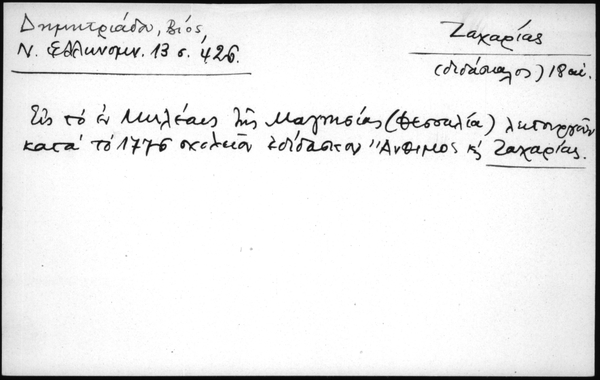 Δημητριάδου, Βίος
Ν. Ἑλληνομν. 13 σ. 426.
Ζαχαρίας
(διδάσκαλος) 18 αἰ.
Εἰς τὸ ἐν Μηλέαις τῆς Μαγνησίας (Θεσσαλία) λειτουργοῦν
κατὰ τὸ 1776 σχολεῖον ἐδίδασκον Ἄνθιμος κ̀ Ζαχαρίας.